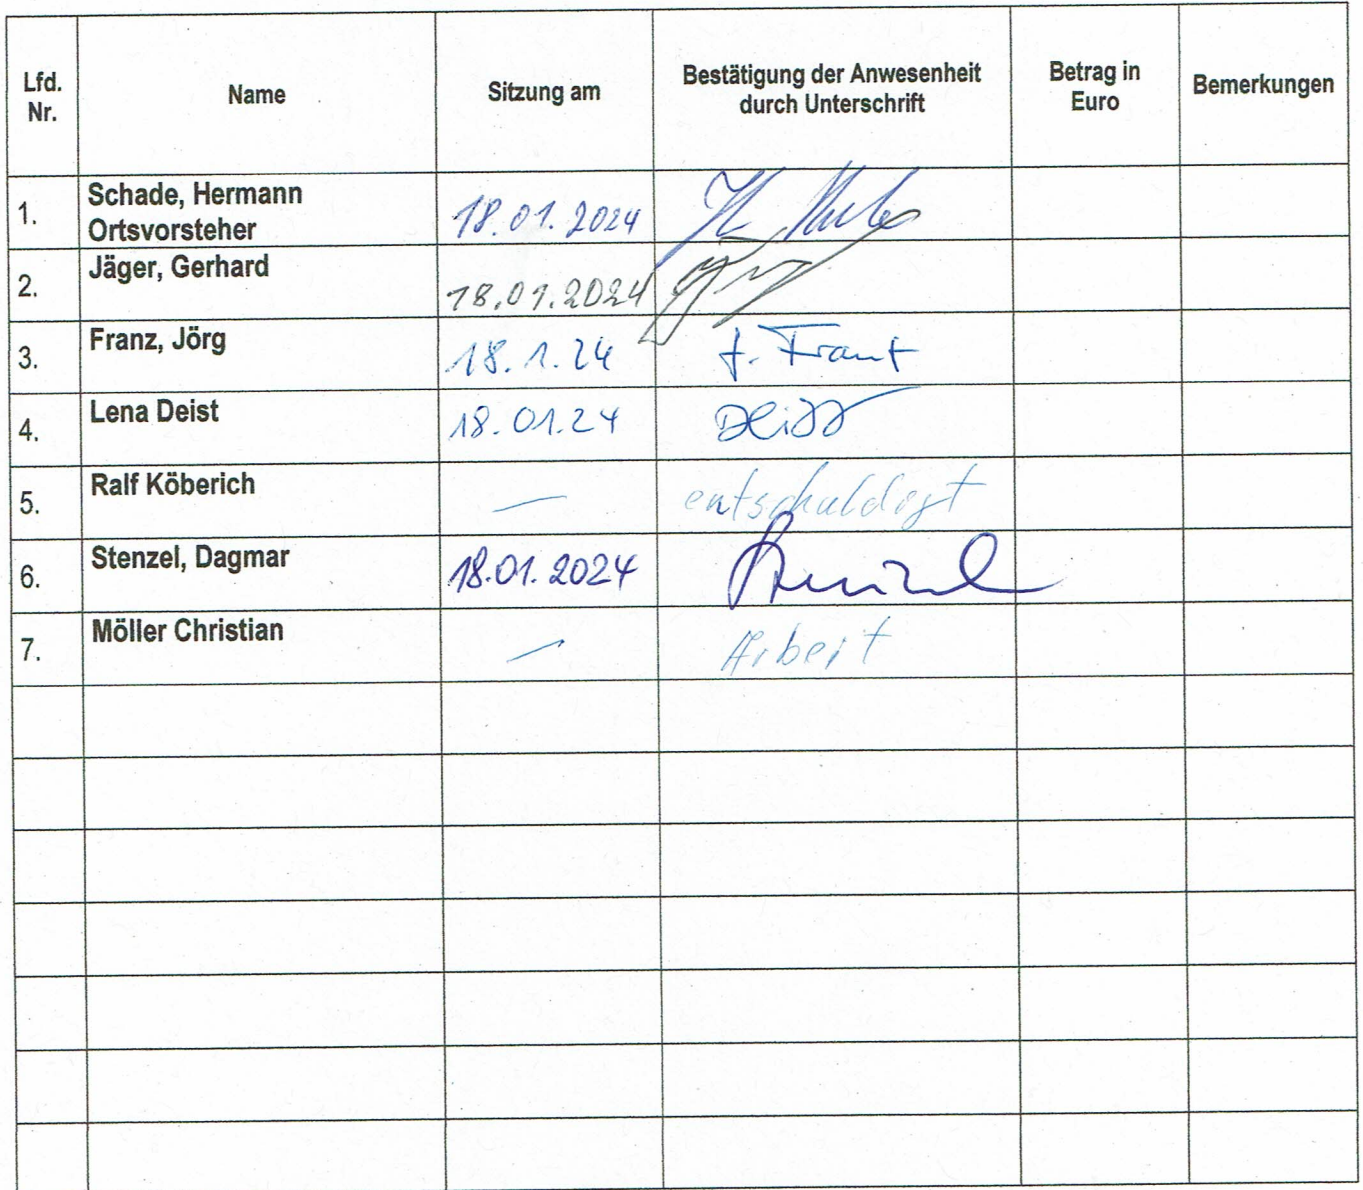 Lfd. Nr. Name Sitzung am Bestätigung der Anwesenheit durch Unterschrift Betrag in Euro Bemerkungen
1. Schade, Hermann Ortsvorsteher 18.01.2024
2. Jäger, Gerhard 18.01.2024
3. Franz, Jörg 18.1.24 J. Franz
4. Lena Deist 18.01.24 Deist
5. Ralf Köberich — entschuldigt
6. Stenzel, Dagmar 18.01.2024 Stenzel
7. Möller Christian — Arbeit